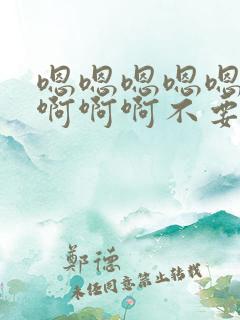 嗯嗯嗯嗯嗯
啊啊啊不要
鄭德
未经同意禁止转载